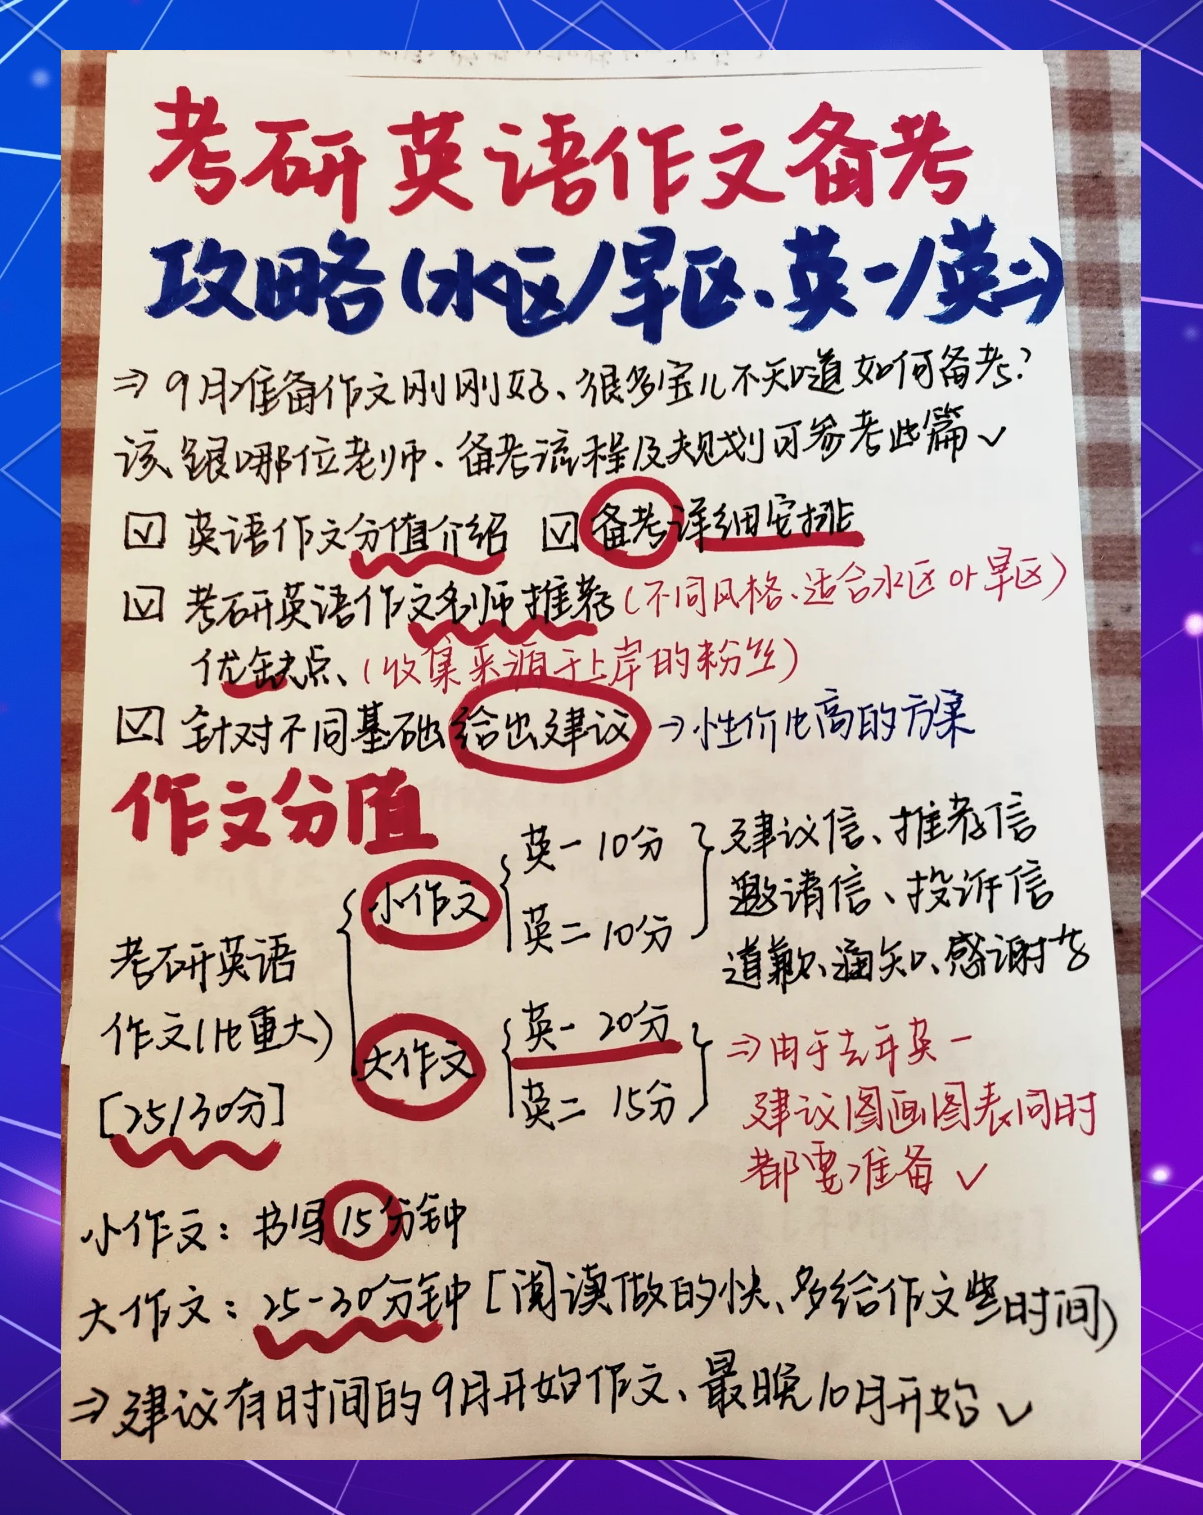 考研英语作文备考
攻略(水区/旱区、英一/英二)
⇒ 9月准备作文刚刚好、很多宝儿不知道如何备考?
该跟哪位老师、备考流程及规划可参考此篇✓
☑ 英语作文分值介绍 ☑ 备考详细安排
☑ 考研英语作文名师推荐(不同风格、适合水区or旱区)
优缺点、(收集来源于上岸的粉丝)
☑ 针对不同基础给出建议 →性价比高的方案
作文分值
考研英语
作文(比重大)
[25/30分]
小作文
英一 10分
英二 10分
建议信、推荐信
邀请信、投诉信
道歉、通知、感谢等
大作文
英一 20分
英二 15分
⇒由于去年英一
建议图画图表同时
都要准备 ✓
小作文: 书写15分钟
大作文: 25-30分钟[阅读做的快、多给作文些时间)
⇒ 建议有时间的9月开始作文、最晚10月开始✓